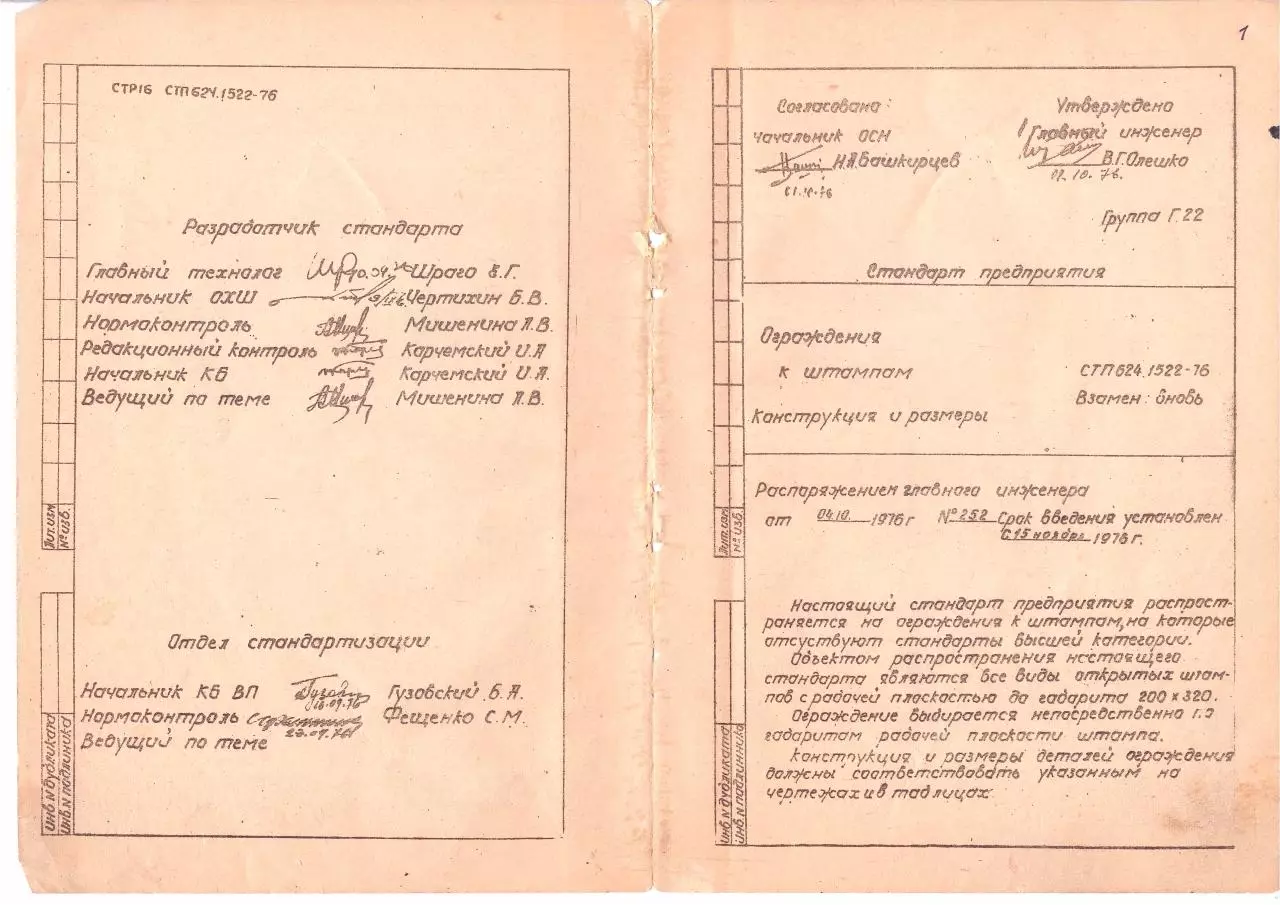 СТР16 СТП624.1522-76
Разработчик стандарта
Главный технолог Шраго Е.Г.
Начальник ОХШ Чертихин Б.В.
Нормоконтроль Мишенина Л.В.
Редакционный контроль Карчемский И.Л
Начальник КБ Карчемский И.Л.
Ведущий по теме Мишенина Л.В.
Лит.изм
№ изв.
Отдел стандартизации
Начальник КБ ВП Гузовский Б.А.
18.09.76
Нормоконтроль Фещенко С.М.
23.09.76
Ведущий по теме
Инв.N дубликата
Инв.N подлинника
1
Согласовано:
Начальник ОСН
Н.Я.Башкирцев
01.10.76
Утверждено
Главный инженер
В.Г.Олешко
02.10.76.
Группа Г.22
Стандарт предприятия
Ограждения
к штампам
Конструкция и размеры
СТП624.1522-76
Взамен: вновь
Распоряжением главного инженера
от 04.10. 1976г №252 Срок введения установлен
с 15 ноября 1976г.
Лит.изм
№ изв.
Настоящий стандарт предприятия распрост-
раняется на ограждения к штампам, на которые
отсуствуют стандарты высшей категории.
Объектом распространения настоящего
стандарта являются все виды открытых штам-
пов с рабочей плоскостью до габарита 200×320.
Ограждение выбирается непосредственно по
габаритам рабочей плоскости штампа.
Конструкция и размеры деталей ограждения
должны соответствовать указанным на
чертежах и в таблицах.
Инв.N дубликата
Инв.N подлинника